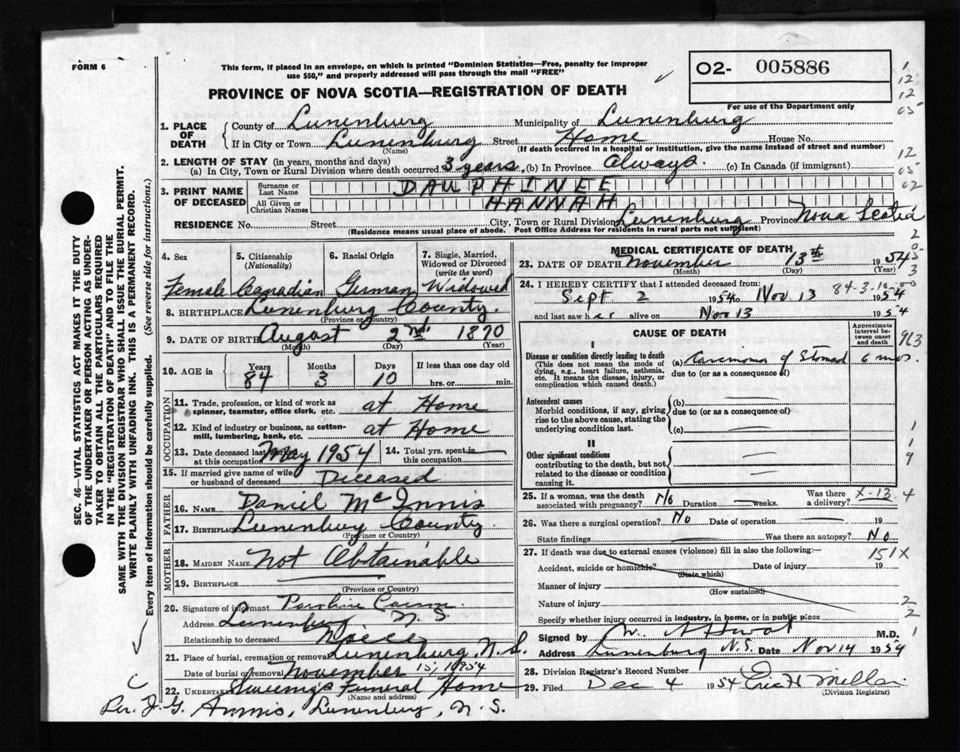 FORM 6
This form, if placed in an envelope, on which is printed "Dominion Statistics—Free, penalty for improper
use $50," and properly addressed will pass through the mail "FREE"
O2- 005886
PROVINCE OF NOVA SCOTIA—REGISTRATION OF DEATH
For use of the Department only
1. PLACE OF DEATH
County of Lunenburg Municipality of Lunenburg
If in City or Town Lunenburg Street Home House No.
(Name) (If death occurred in a hospital or institution, give the name instead of street and number)
2. LENGTH OF STAY (in years, months and days)
(a) In City, Town or Rural Division where death occurred 3 years. (b) In Province always. (c) In Canada (if immigrant)
3. PRINT NAME OF DECEASED
Surname or Last Name DAUPHINEE
All Given or Christian Names HANNAH
RESIDENCE No. Street City, Town or Rural Division Lunenburg Province Nova Scotia
(Residence means usual place of abode. Post Office Address for residents in rural parts not sufficient)
4. Sex Female
5. Citizenship (Nationality) Canadian
6. Racial Origin German
7. Single, Married, Widowed or Divorced (write the word) Widowed
8. BIRTHPLACE Lunenburg County
(Province or Country)
9. DATE OF BIRTH August 2nd 1870
(Month) (Day) (Year)
10. AGE in Years 84 Months 3 Days 10 If less than one day old
hrs. or min.
OCCUPATION
11. Trade, profession, or kind of work as spinner, teamster, office clerk, etc. at Home
12. Kind of industry or business, as cotton-mill, lumbering, bank, etc. at Home
13. Date deceased last worked at this occupation May 1954 14. Total yrs. spent in this occupation
15. If married give name of wife or husband of deceased Deceased
FATHER
16. Name Daniel McInnis
17. Birthplace Lunenburg County
(Province or Country)
MOTHER
18. MAIDEN NAME Not Obtainable
19. BIRTHPLACE
(Province or Country)
20. Signature of informant
Address Lunenburg N.S.
Relationship to deceased Niece
21. Place of burial, cremation or removal Lunenburg, N.S.
Date of burial or removal November 15, 1954
22. Undertaker Sweeny's Funeral Home
(Name and address)
Per. J. G. Annis, Lunenburg, N.S.
MEDICAL CERTIFICATE OF DEATH
23. DATE OF DEATH November 13th 1954
(Month) (Day) (Year)
24. I HEREBY CERTIFY that I attended deceased from:
84-3-10
Sept 2 1954 to Nov 13 1954
and last saw her alive on Nov 13 1954
CAUSE OF DEATH
Approximate interval between onset and death
I
Disease or condition directly leading to death
(This does not mean the mode of dying, e.g., heart failure, asthenia, etc. It means the disease, injury, or complication which caused death.)
(a) Carcinoma of Stomach 6 mos.
due to (or as a consequence of)
Antecedent causes
Morbid conditions, if any, giving rise to the above cause, stating the underlying condition last.
(b)
due to (or as a consequence of)
(c)
II
Other significant conditions
contributing to the death, but not related to the disease or condition causing it.
25. If a woman, was the death associated with pregnancy? No Duration weeks. Was there a delivery? X-13
26. Was there a surgical operation? No Date of operation 19
State findings Was there an autopsy? No
27. If death was due to external causes (violence) fill in also the following:—
151X
Accident, suicide or homicide? Date of injury 19
(State which)
Manner of injury
(How sustained)
Nature of injury
Specify whether injury occurred in industry, in home, or in public place
Signed by M.D.
Address Lunenburg N.S. Date Nov 14 1954
28. Division Registrar's Record Number
29. Filed Dec 4 1954
(Division Registrar)
SEC. 46—VITAL STATISTICS ACT MAKES IT THE DUTY
OF THE UNDERTAKER OR PERSON ACTING AS UNDER-
TAKER TO OBTAIN ALL THE PARTICULARS REQUIRED
IN THE "REGISTRATION OF DEATH" AND TO FILE THE
SAME WITH THE DIVISION REGISTRAR WHO SHALL ISSUE THE BURIAL PERMIT.
WRITE PLAINLY WITH UNFADING INK. THIS IS A PERMANENT RECORD.
Every item of information should be carefully supplied. (See reverse side for instructions.)